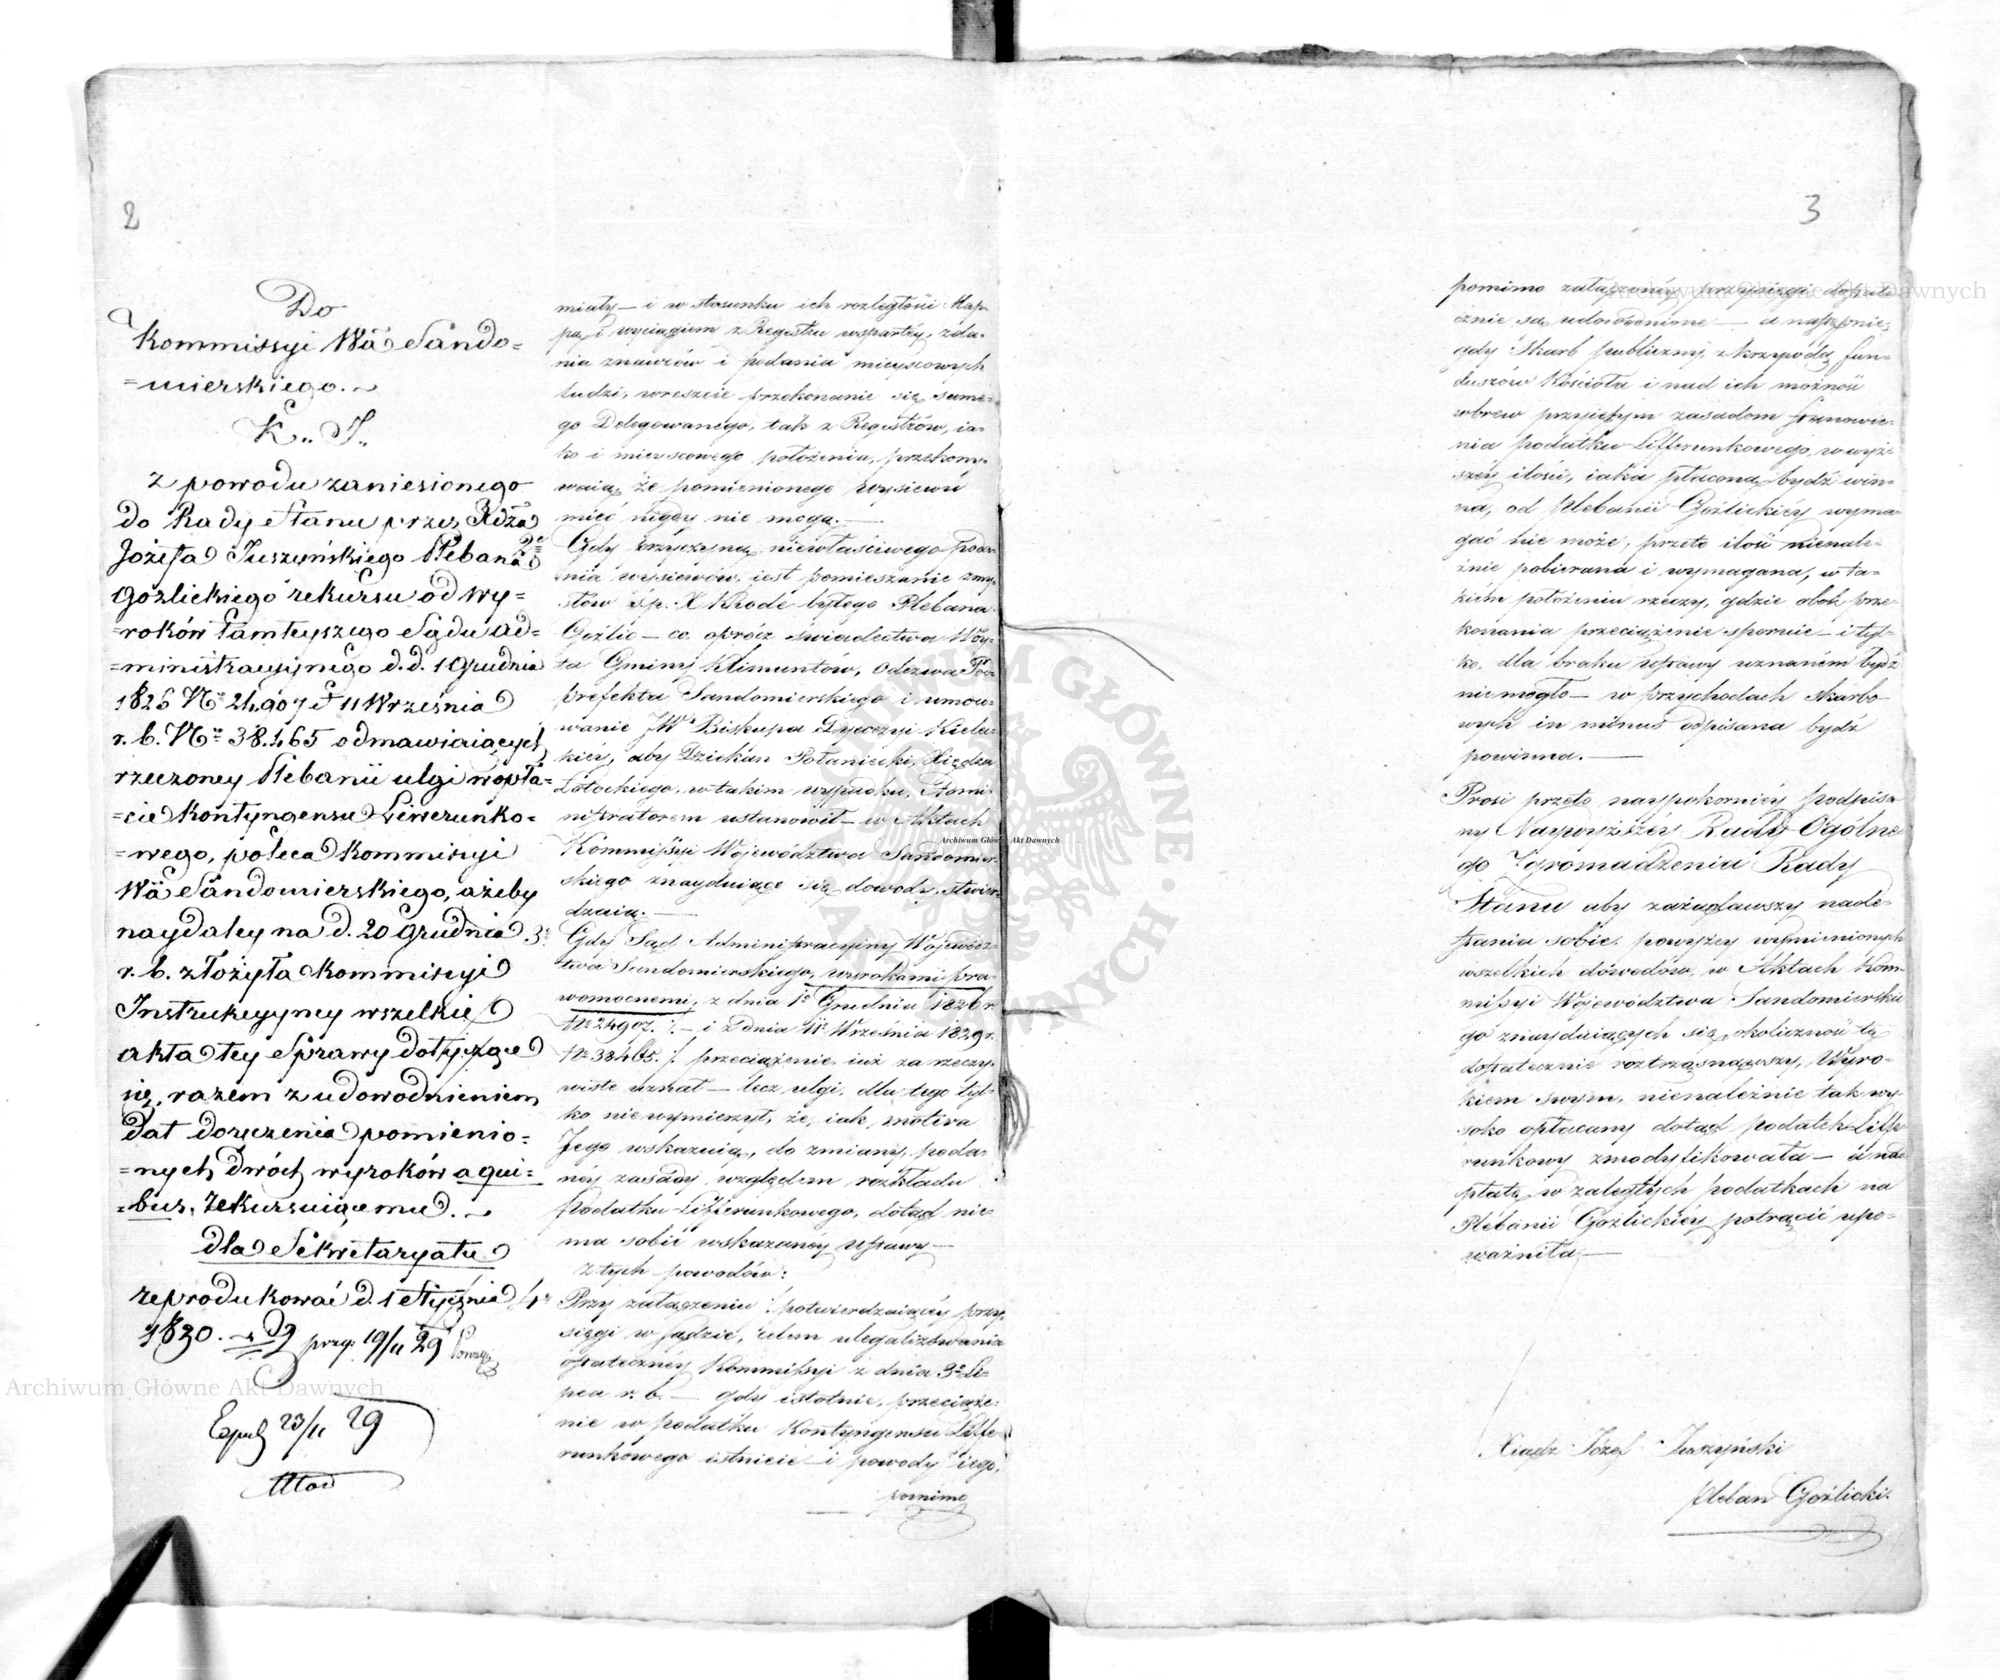 2
Do
Kommissyi Wä Sando=
=mierskiego.
K.. J..
z powodu zaniesionego
do Rady Stanu przez Xdza
Józefa Juszyńskiego Plebana
Gozlickiego rekursu od wy=
=roków tamteyszego Sądu ad=
=ministracyinego d.d. 1 Grudnia
1826 Nº 24,907 i 11 Września
r. b. Nº 38,465 odmawiaiących
rzeczoney Plebanii ulgi w opła=
=cie Kontyngensu Liwerunko=
=wego, poleca Kommissyi
Wä Sandomierskiego, ażeby
naydaley na d. 20 Grudnia
r. b. złożyła Kommissyi
Instrukcyyney wszelkie
akta tey Sprawy dotyczące
się, razem z udowodnieniem
dat doręczenia pomienio=
=nych dwóch wyroków a qui=
=bus, rekursuiącemu.
dla Sekretaryatu
reprodukować d. 1 Stycznia
1830.
19/11 29
Exped 23/11 29
miały — i w stosunku ich rozległości Map=
pą, i wyciągiem z Regestru wspartey, zda=
nia znawców i podania mieyscowych
ludzi, wreszcie przekonanie się same=
go Delegowanego, tak z Regestrów, ia=
ko i mieyscowego położenia, przekony=
waią, że pomienionego wysiewu
mieć nigdy nie mogą. —
2º Gdy przyczyną niewłaściwego poda=
nia wysiewów, iest pomieszanie zmy=
słów śp. X Khode byłego Plebana
Goźlic — co oprócz świadectwa Wóy=
ta Gminy Klimuntów, Odezwa Pod=
prefekta Sandomierskiego i umoco=
wanie JW Biskupa Dyecezyi Kielec=
kiey, aby Dziekan Połaniecki, Xiędza
Łotockiego, w takim wypadku, Admi=
nistratorem ustanowił — w Aktach
Kommissyi Województwa Sandomier=
skiego znayduiące się dowody, stwier=
dzaią. —
3º Gdy Sąd Administracyiny Wojewódz=
twa Sandomierskiego, wyrokami pra=
womocnemi, z dnia 1º Grudnia 1826 r
Nº 24907. — i z dnia 11º Września 1829 r.
Nº 38465. przeciążenie iuż za rzeczy=
wiste uznał — lecz ulgi, dla tego tyl=
ko niewymierzył, że, iak motiva
Jego wskazuią, do zmiany poda=
néy zasady względem rozkładu
Podatku Lifferunkowego, dotąd nie=
ma sobie wskazanéy Ustawy —
z tych powodów:
4º Przy załączeniu potwierdzaiącéy przy=
sięgi w sądzie, celem ulegalizowania
ostatecznéy Kommissyi z dnia 3º Li=
pca r. b. — gdy istotnie, przeciąże=
nie w podatku Kontyngensu Liffe=
runkowego istnieie — i powody iego,
pomimo
3
pomimo załączoney przysięgi dostate
cznie są udowodnione — a nastęnie
gdy Skarb publiczny z krzywdą fun=
duszów Kościoła i nad ich możność
wbrew przyiętym zasadom stanowie=
nia podatku Lifferunkowego, w wyż=
széy ilości, iaka płaconą bydź win=
na, od Plebanii Goźlickiéy wyma=
gać nie może, przeto ilość nienale=
żnie pobierana i wymagana, w ta=
kiém położeniu rzeczy, gdzie obok prze=
konania przeciążenie spornie — i tyl=
ko dla braku Ustawy uznaném bydź
niemogło — w przychodach Skarbo=
wych in minus odpisana bydź
powinna. —
Prosi przeto naypokorniéy podpisa=
ny Naywyższéy Rady Ogólne=
go Zgromadzenia Rady
Stanu aby zażądawszy nade=
słania sobie, powyżey wymienionych
wszelkich dowodów, w Aktach Kom=
missyi Województwa Sandomierskie
go znayduiących się, okoliczność tę
dostatecznie roztrząsnąwszy, Wyro=
kiem swym, nienależnie tak wy
soko opłacany dotąd podatek Liffe
runkowy zmodyfikowała — a nad
płatę, w zaległych podatkach na
Plebanii Goźlickiéy potrącić upo=
ważniła —
Xiądz Józef Juszyński
Pleban Goźlicki.
Archiwum Główne Akt Dawnych
Archiwum Główne Akt Dawnych
Archiwum Główne Akt Dawnych
ARCHIWUM GŁÓWNE AKT DAWNYCH